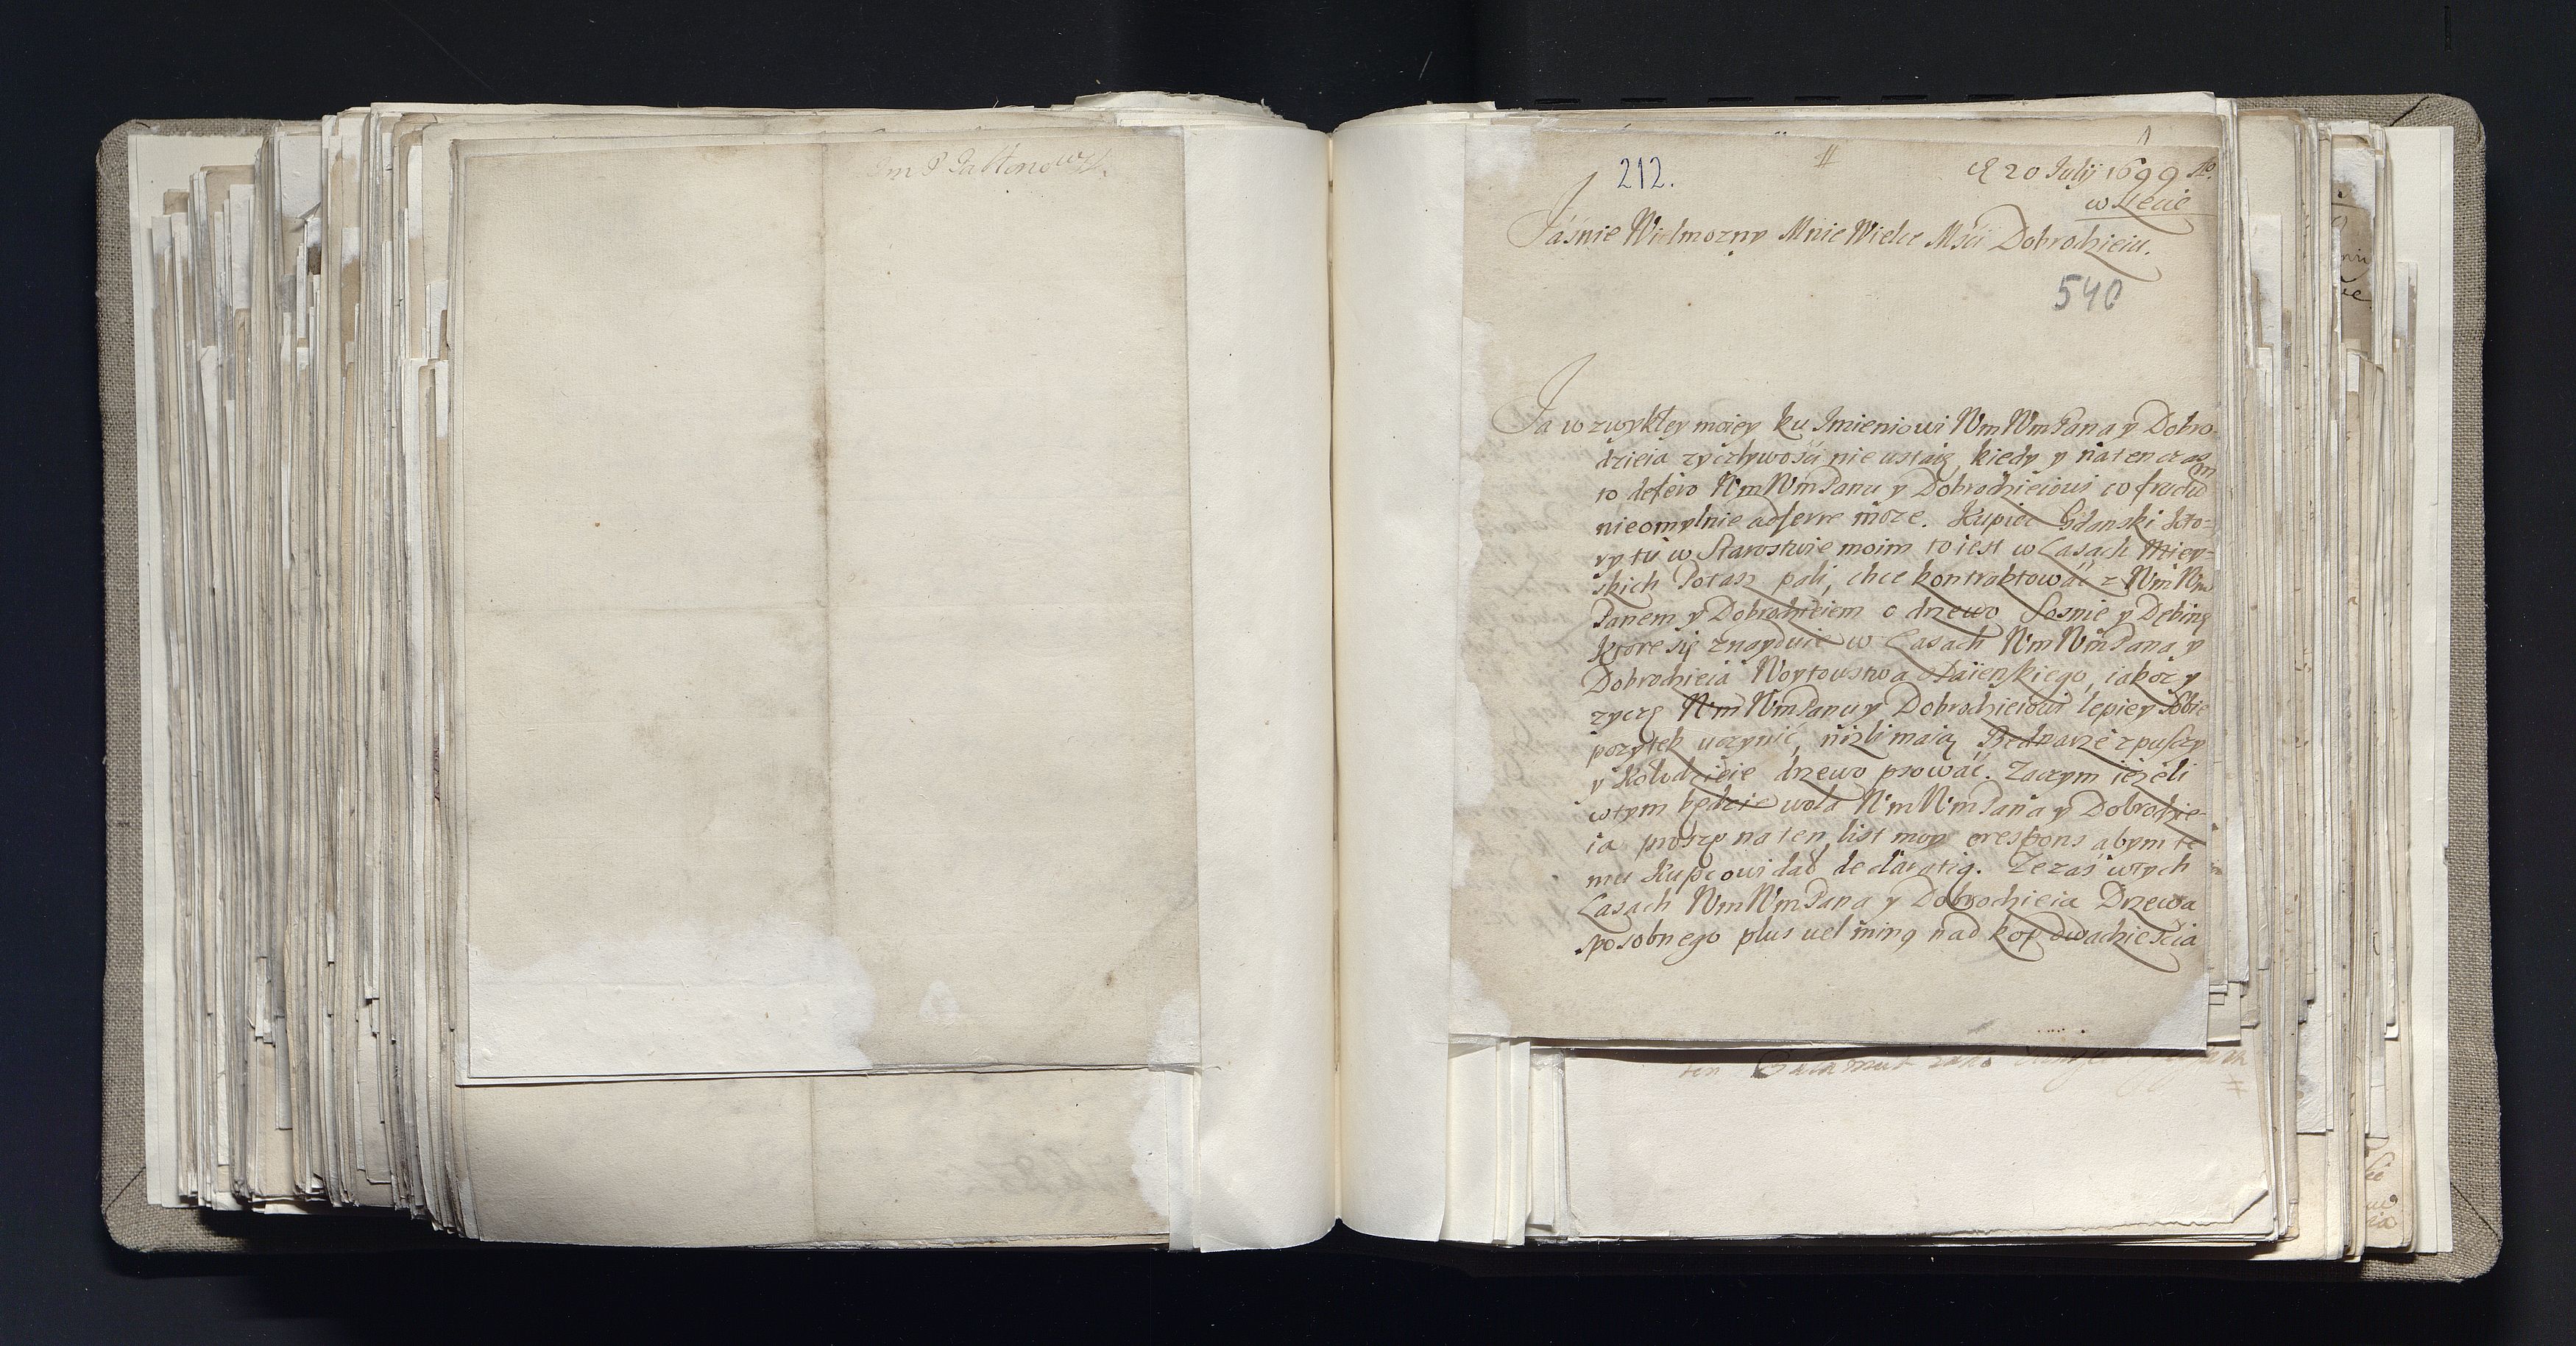 Im P
212.
#
20 Julij 1699
Jaśnie Wielmozny Mnie Wielce Mści Dobrodzieiu.
540
Ja w zwykłey moiey ku Imieniowi Wm WmPana y Dobro
dzieia zyczlywości nie ustaię kiedy y na ten czas
to defero Wm WmPanu y Dobrodzieiowi co fructum
nieomylnie adferre może. Kupiec Gdanski Kto=
ry tu w Starostwie moim to iest w Lasach
skich Potasz pali, chce kontraktować z Wm Wm
Panem y Dobrodzieiem o drzewo Sosnie y Dębinę
Ktore się znayduie w Lasach Wm WmPana y
Dobrodzieia Woytowstwa iakoz y
zyczę Wm WmPanu y Dobrodzieiowi lepiey sobie
pozytek uczynić, nizli maią Bednarze z puszczy
y Kolodzieie drzewo psować. Zaczym iezeli
w tym będzie wola Wm WmPana y Dobrodzie-
ia proszę na ten list moy o respons abym te
mu Kupcowi dał declaratią. Ze zaś w tych
Lasach Wm WmPana y Dobrodzieia Drzewa
sposobnego plus vel minq nad kop dwadzieścia
ten